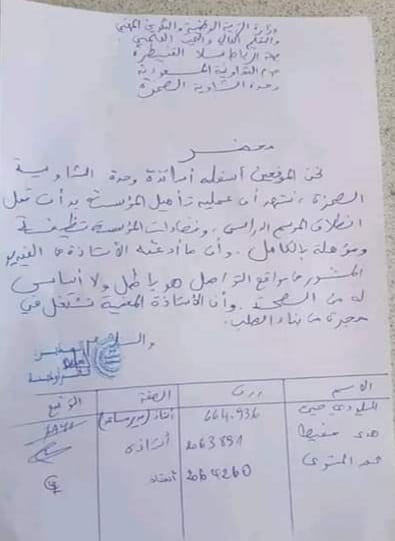 وزارة التربية الوطنية والتكوين المهني
والتعليم العالي والبحث العلمي
جهة الرباط سلا القنيطرة
وحدة الشاوية الصخرة
محضر
نحن الموقعين أسفله أساتذة وحدة الشاوية
الصخرة، نشهد أن عملية تأهيل المؤسسة بدأت قبل
انطلاق الموسم الدراسي، وفضاءات المؤسسة نظيفة
ومؤهلة بالكامل. وأن ما ادعته الأستاذة في الفيديو
المنشور في مواقع التواصل هو باطل ولا أساس
له من الصحة. وأن الأستاذة المعنية تشتغل في
حجرة من بناء الصلب.
والسلام
الاسم الصفة التوقيع
الميلودي 664.936 أستاذ
هدى 2063891 أستاذة
محمد 2064260 أستاذ